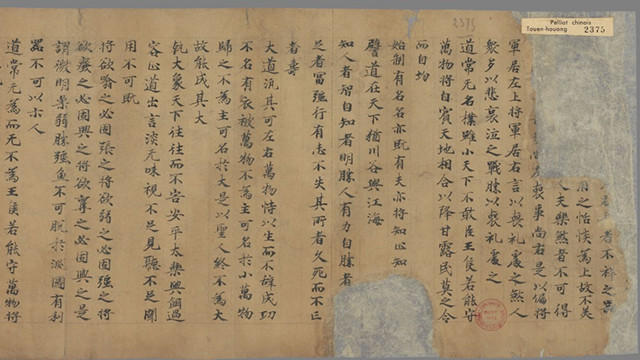 Pelliot chinois
Touen-houang 2375
2375
者不祥之器
用之恬惔為上故不美
人夫樂煞者不可得
喪事尚右是以偏將
軍居左上將軍居右言以喪礼處之煞人
衆多以悲哀泣之戰勝以喪礼處之
道常无名樸雖小天下不敢臣王侯若能守
萬物將自賓天地相合以降甘露民莫之令
而自均
始制有名名亦既有夫亦將知止知
譬道在天下猶川谷與江海
知人者智自知者明勝人有力自勝者
足者富强行有志不失其所者久死而不亡
者壽
大道汎其可左右萬物恃以生而不辝成功
不名有衣被萬物不為主可名於小萬物
歸之不為主可名於大是以聖人終不為大
故能成其大
執大象天下往往而不害安平太樂與餌過
客止道出言淡无味視不足見聽不足聞
用不可既
將欲翕之必固張之將欲弱之必固强之將
欲廢之必固興之將欲奪之必固與之是
謂微明柔弱勝强魚不可脫於淵國有利
器不可以示人
道常无為而无不為王侯若能守萬物將